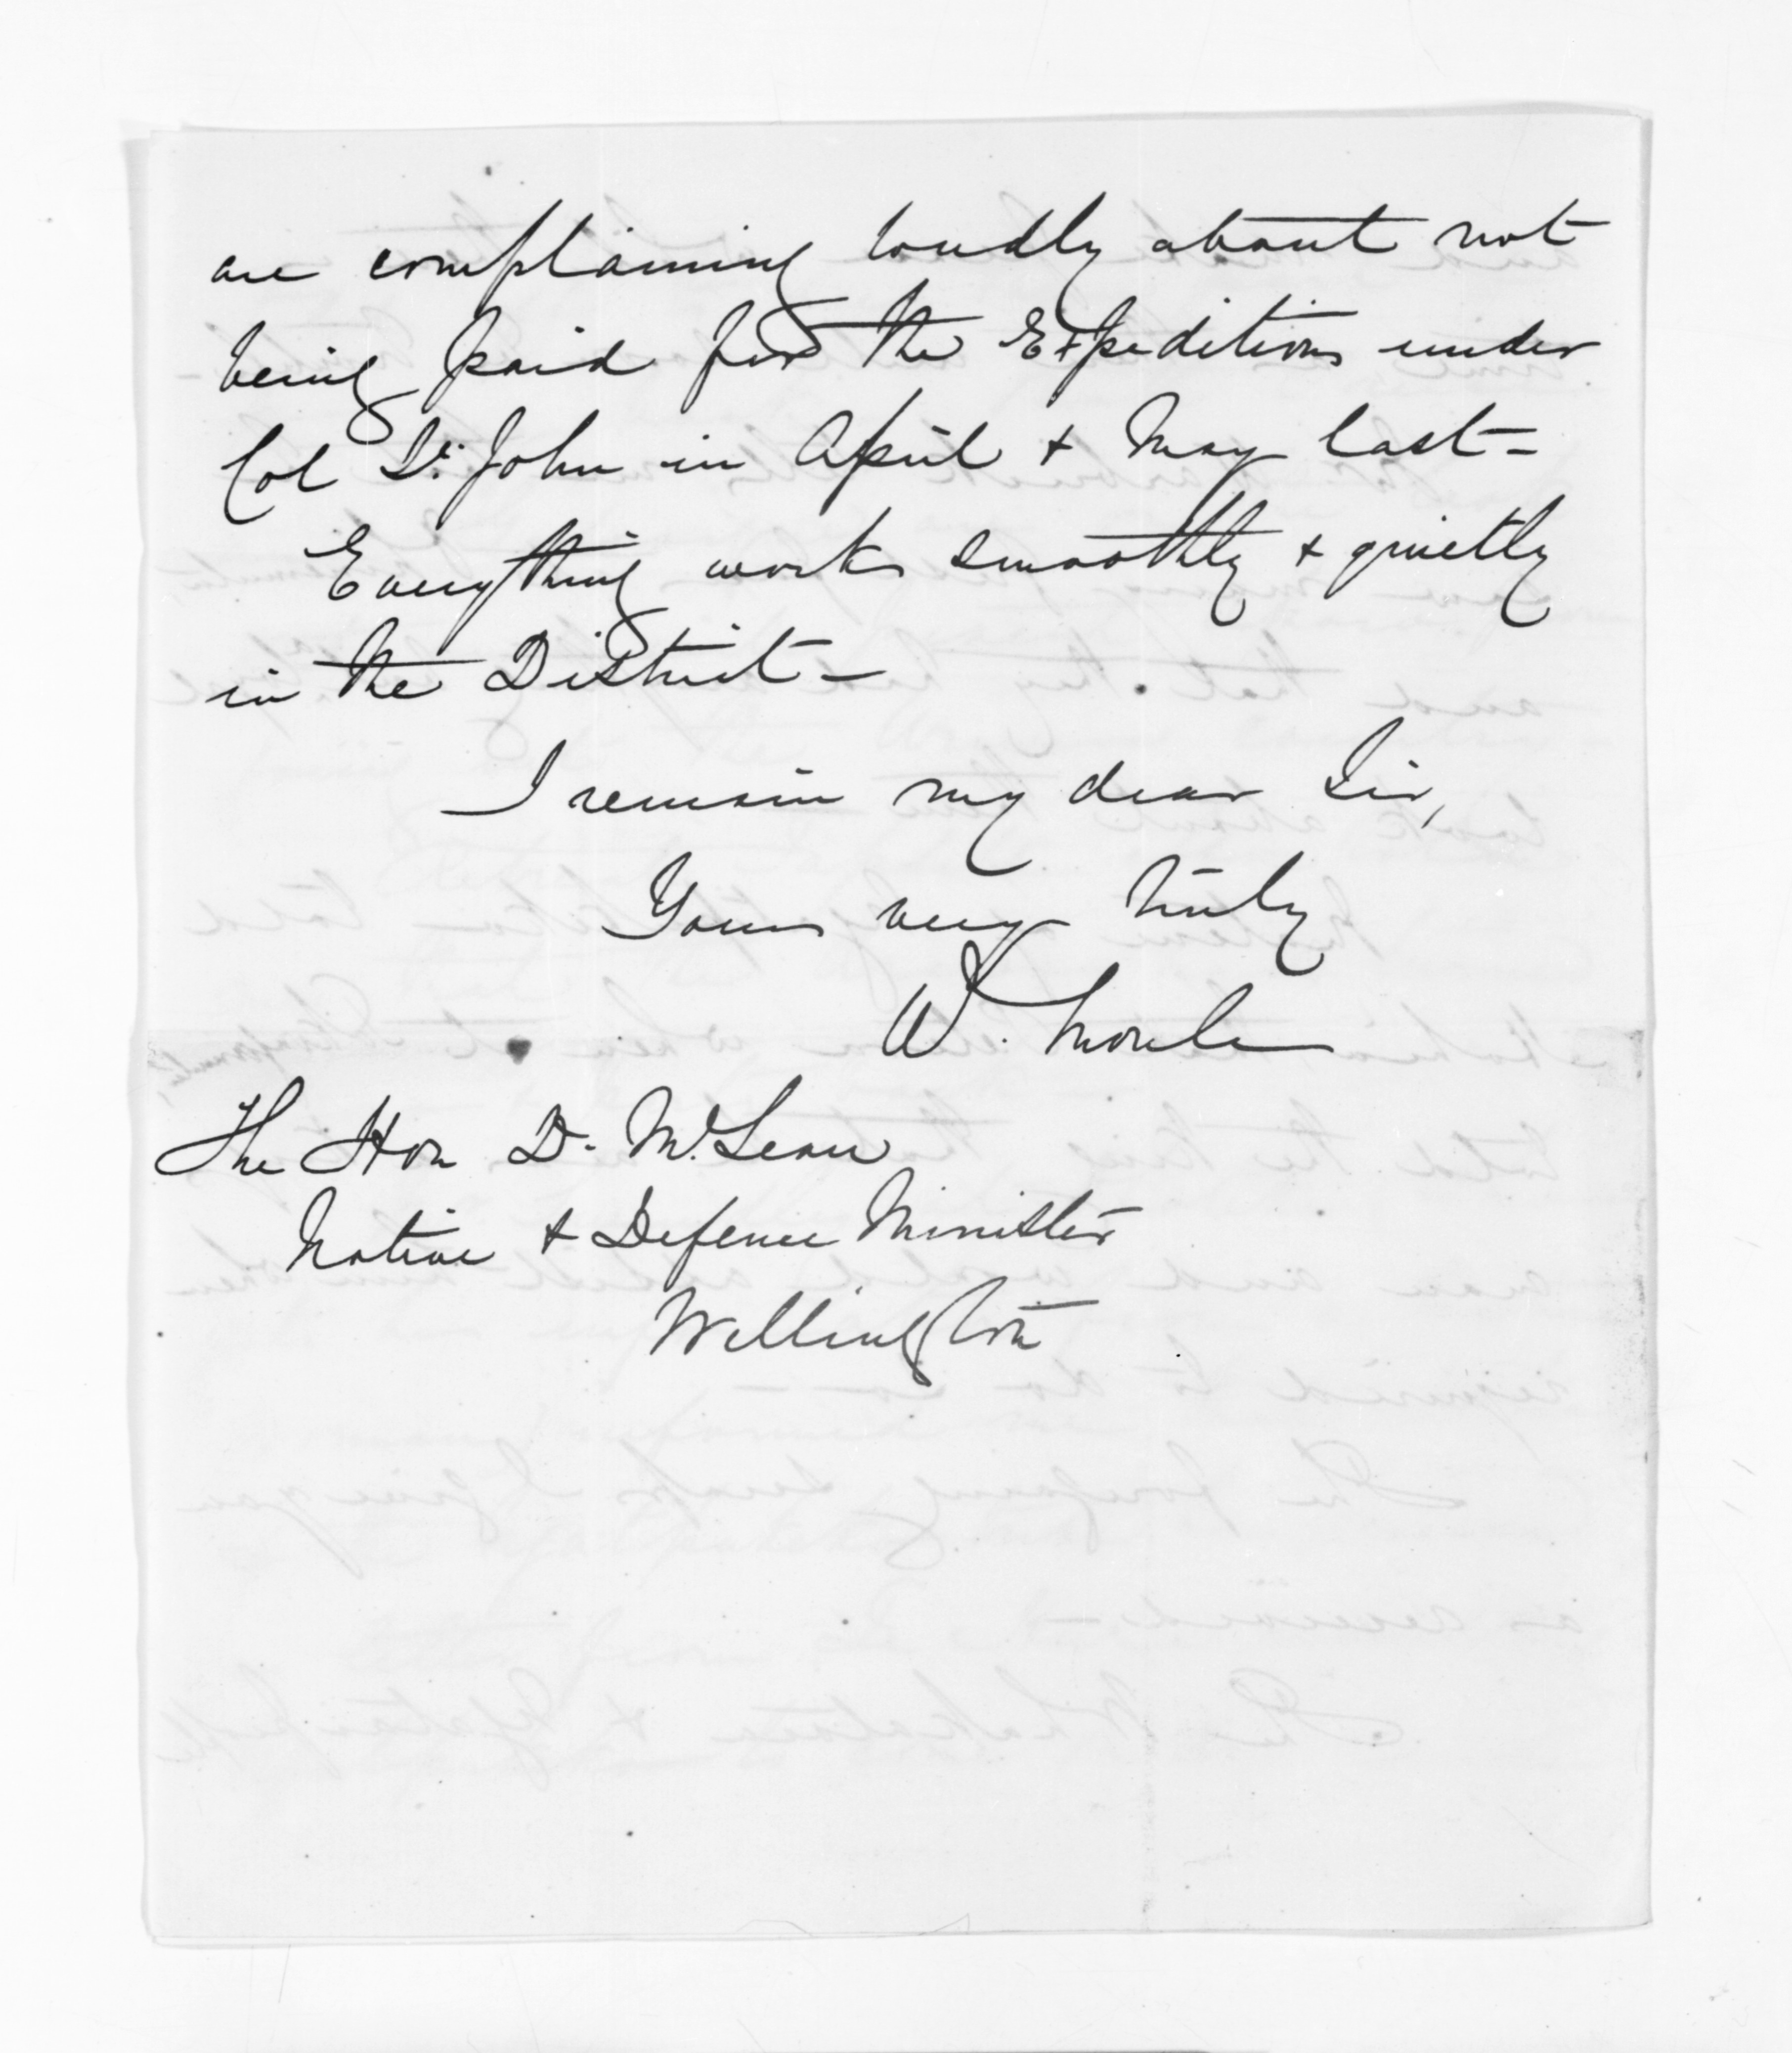 are complaining loudly about not
being paid for the Expeditions under
Col St. John in April + May last -
Everything works smoothly + quietly
in the District -
I remain my dear Sir,
Yours very truly
W. Moule
The Hon D. McLean
Native + Defence Minister
Wellington